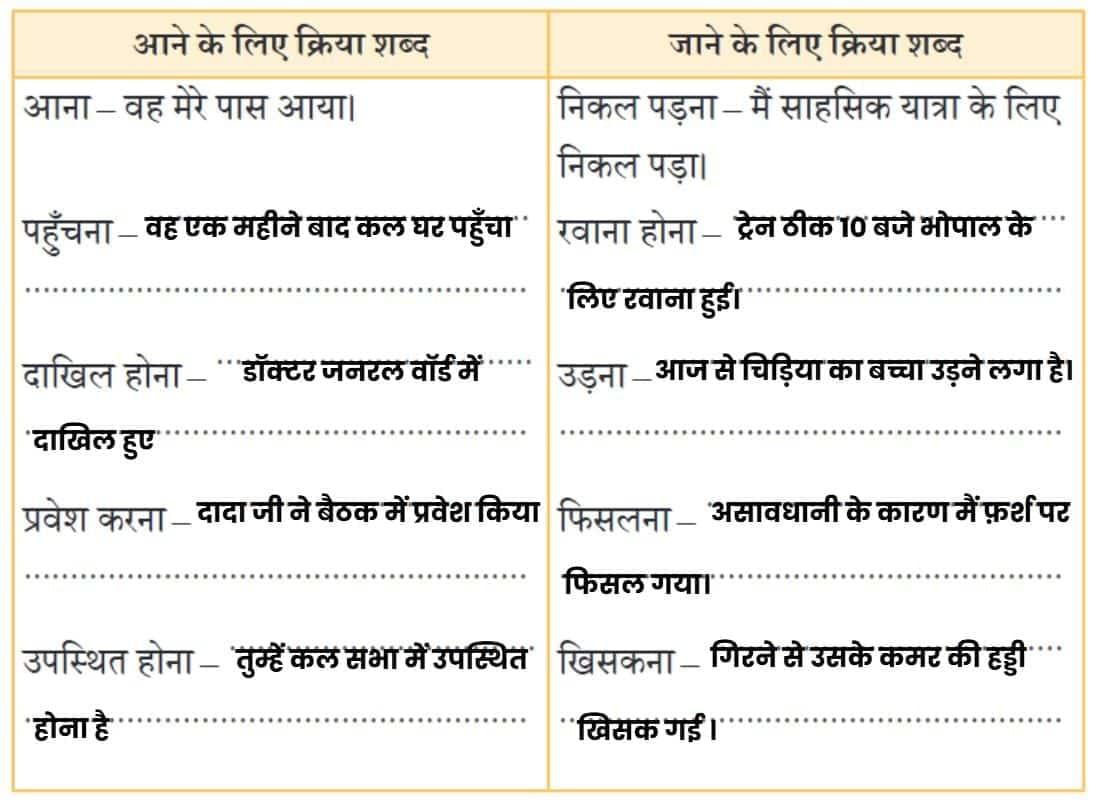 आने के लिए क्रिया शब्द
जाने के लिए क्रिया शब्द
आना – वह मेरे पास आया।
निकल पड़ना – मैं साहसिक यात्रा के लिए
निकल पड़ा।
पहुँचना – वह एक महीने बाद कल घर पहुँचा
रवाना होना – ट्रेन ठीक 10 बजे भोपाल के
लिए रवाना हुई।
दाखिल होना – डॉक्टर जनरल वॉर्ड में
दाखिल हुए
उड़ना – आज से चिड़िया का बच्चा उड़ने लगा है।
प्रवेश करना – दादा जी ने बैठक में प्रवेश किया
फिसलना – असावधानी के कारण मैं फ़र्श पर
फिसल गया।
उपस्थित होना – तुम्हें कल सभा में उपस्थित
होना है
खिसकना – गिरने से उसके कमर की हड्डी
खिसक गई ।